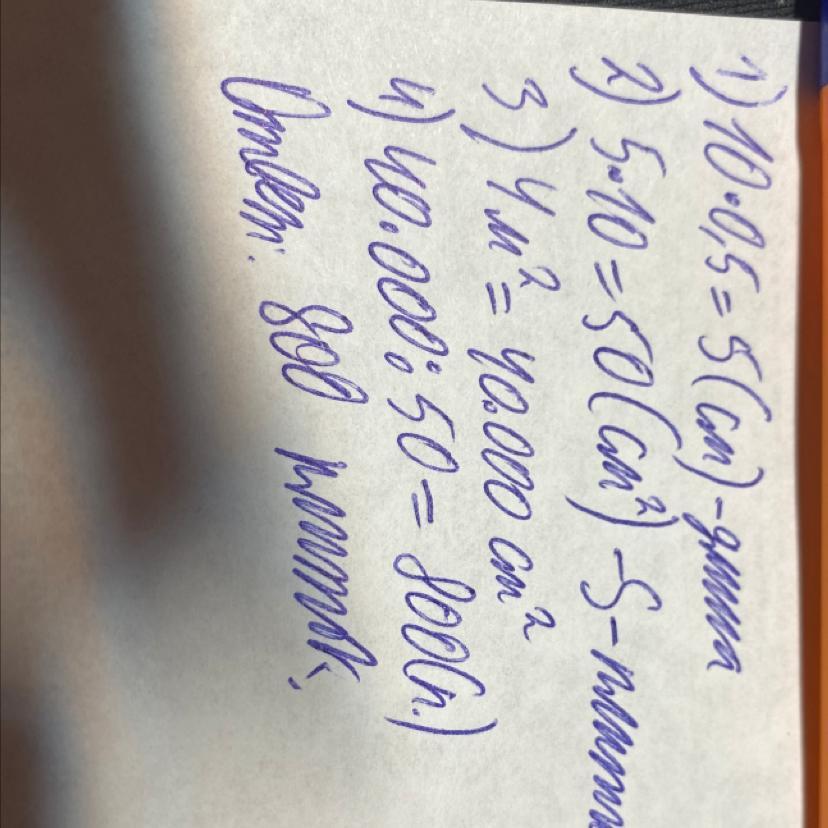 1) 10·0,5=5(см)-длина
2) 5·10=50(см²)-S-плитки
3) 4м²=40.000 см²
4) 40.000:50=800(п.)
Ответ: 800 плиток.